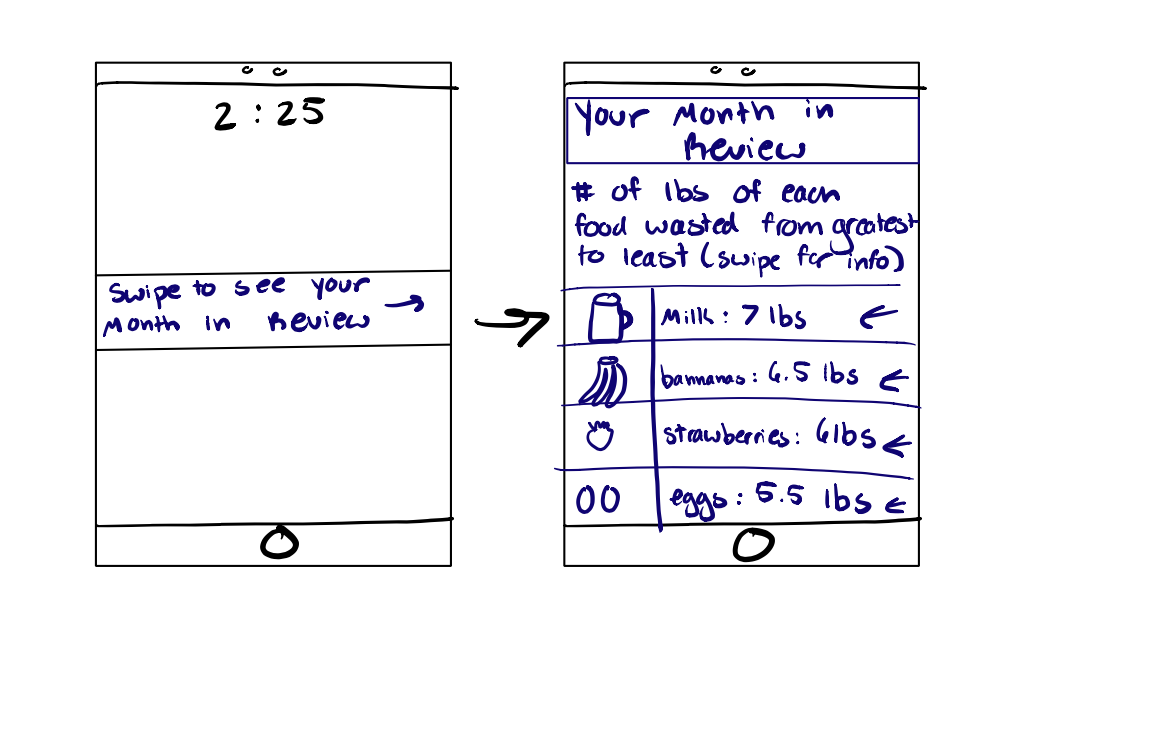 2:25
Swipe to see your
Month in Review
Your Month in
Review
# of lbs of each
food wasted from greatest
to least (swipe for info)
Milk: 7 lbs
bannanas: 6.5 lbs
strawberries: 6lbs
eggs: 5.5 lbs